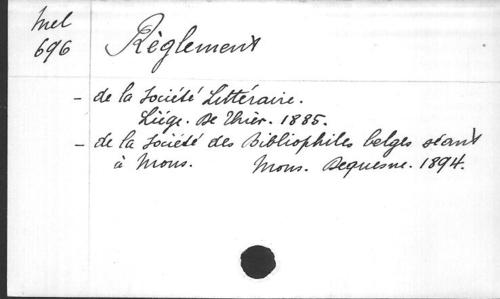 Mel
696
Règlement
- de la Société Littéraire.
Liége. De Thier. 1885.
- de la Société des Bibliophiles belges séant
à Mons. Mons. Dequesne. 1894.